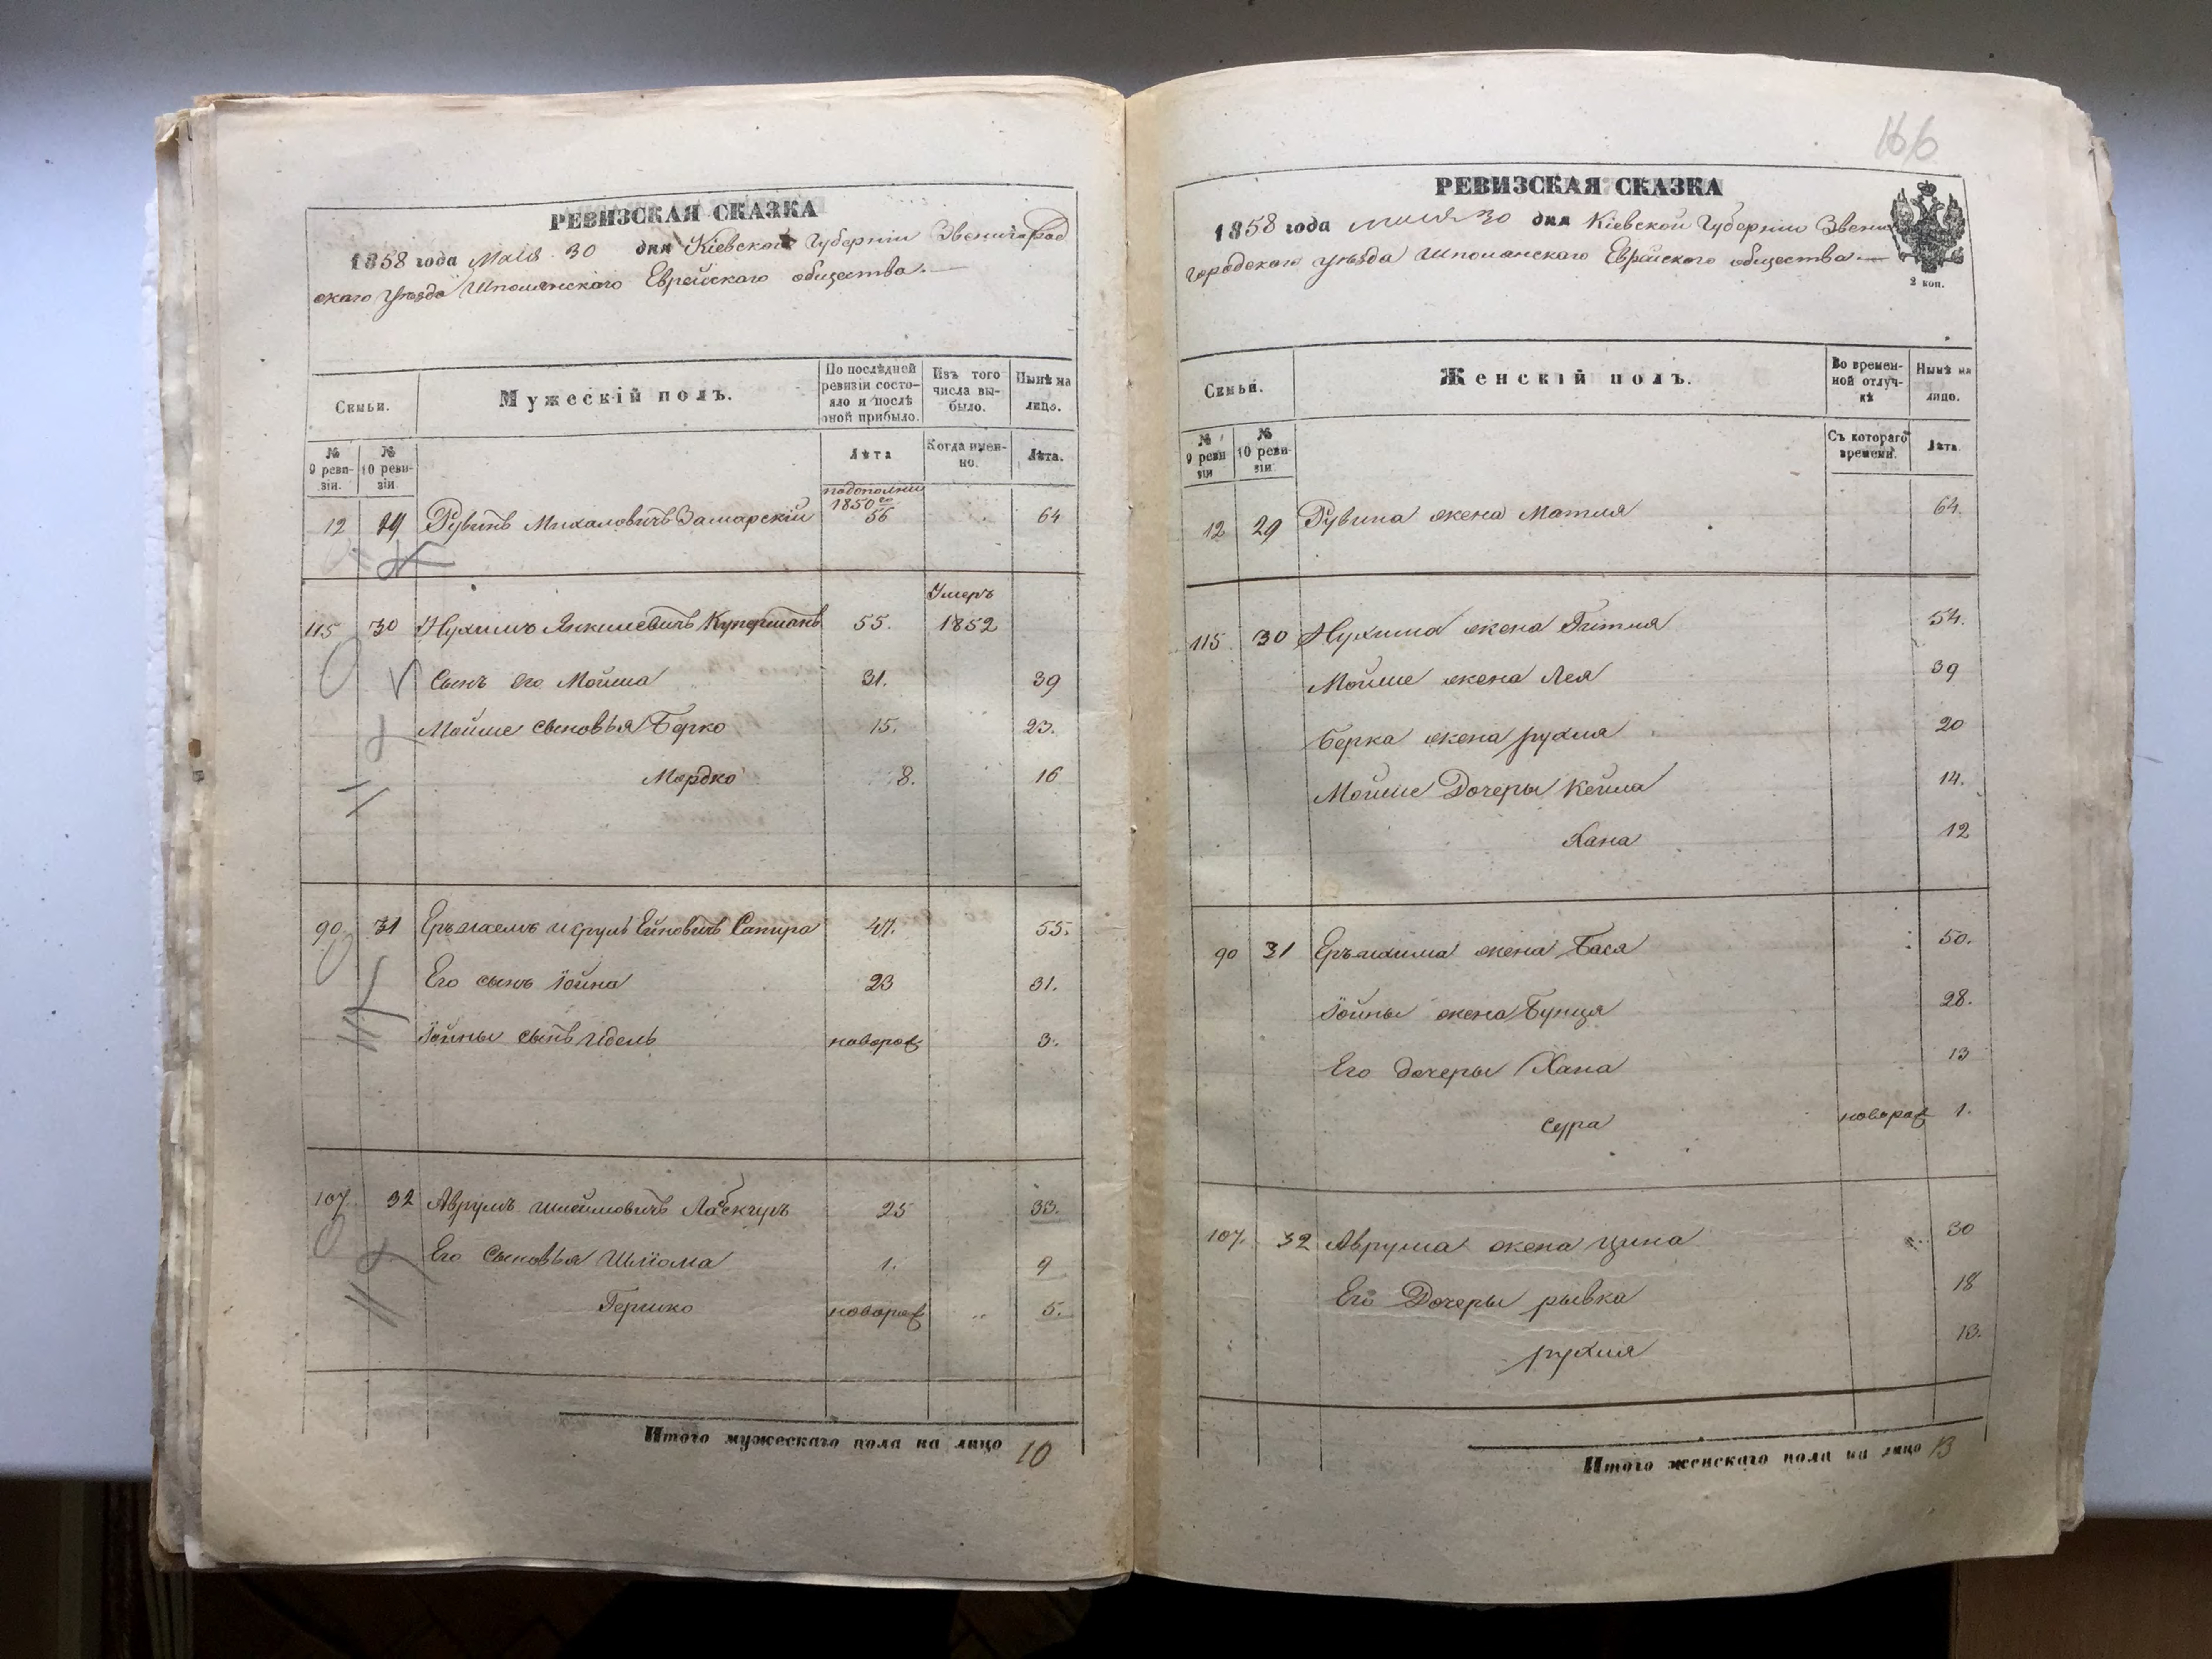 РЕВИЗСКАЯ СКАЗКА
1858 года Мая 30 дня Кіевской Губерніи Звенигород
скаго уѣзда Шполянскаго Еврейскаго общества.
Семьи.
Мужескій полъ.
По послѣдней
ревизіи состо-
яло и послѣ
оной прибыло.
Изъ того
числа вы-
было.
Нынѣ на
лицо.
№
9 реви-
зіи.
№
10 реви-
зіи
Лѣта
Когда имен-
но.
Лѣта.
1850го
12 29 Рувинъ Михаловичъ Замарскій 56 64
Умеръ
115 30 Нухимъ Янкилевичъ Куперманъ 55. 1852
Сынъ его Мойша 31. 39
Мойше сыновья Берко 15. 23.
Мордко 8. 16
90 31 Сапира 47. 55.
Его сынъ Іойна 23 31.
Іойны сынъ Идель новорож 3.
107. 32 Аврумъ 25 33.
Его сыновья Шліома 1. 9
Гершко новорож 5.
Итого мужескаго пола на лицо 10
166
РЕВИЗСКАЯ СКАЗКА
1858 года мая 30 дня Кіевской Губерніи Звени
городскаго уѣзда Шполянскаго Еврейскаго общества
2 коп.
Семьи.
Женскій полъ.
Во времен-
ной отлуч-
кѣ
Нынѣ на
лицо.
№
9 реви
зіи
№
10 реви-
зіи
Съ котораго
времени.
Лѣта
12 29 Рувина жена Матля 64.
115 30 Нухима жена Гитля 54.
Мойше жена Лея 39
Берка жена рухля 20
Мойше Дочеры Кейла 14.
Хана 12
90 31 жена Бася 50.
Іойны жена Бунця 28.
Его дочеры Хана 13
Сура новорож 1.
107. 32 Аврума жена цина 30
Его Дочеры рывка 18
рухля 13.
Итого женскаго пола на лицо 13